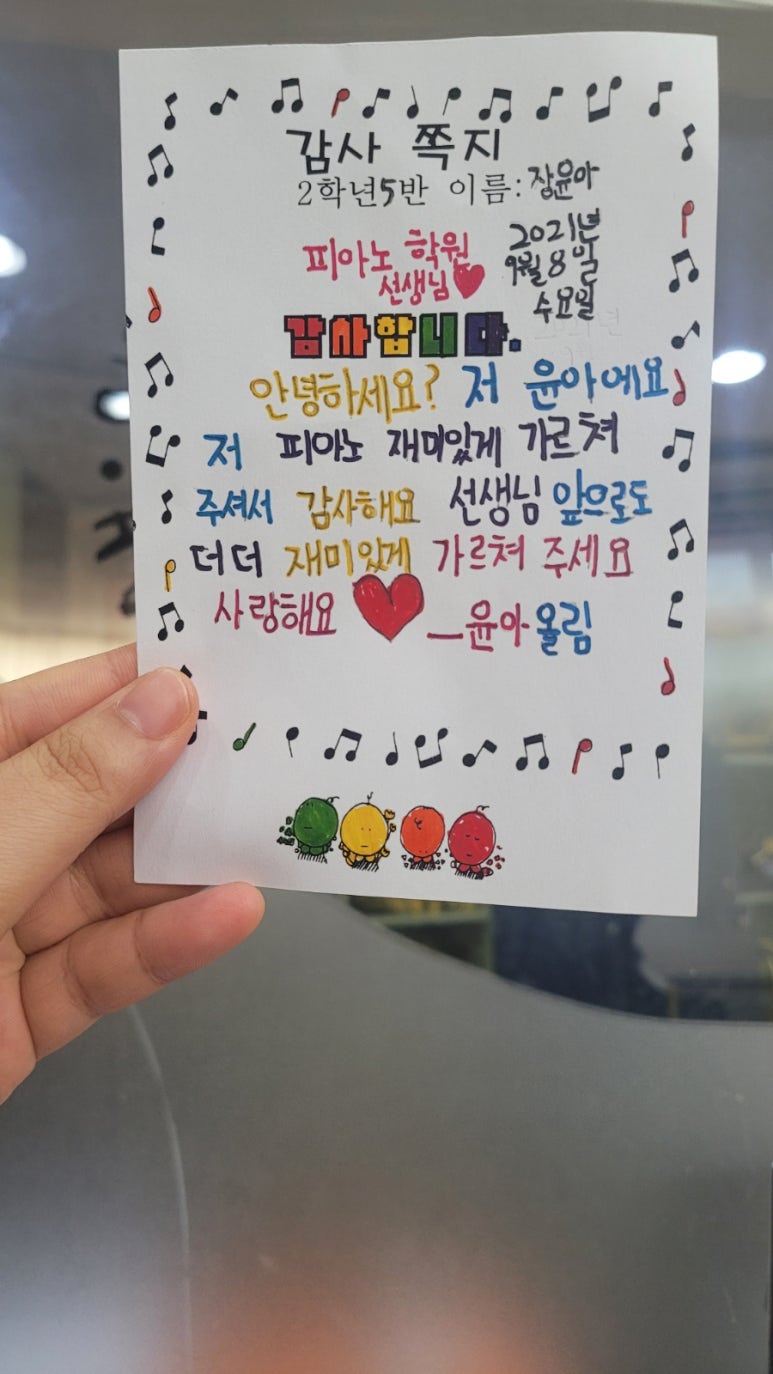 감사 쪽지
2학년5반 이름: 장윤아
피아노 학원
선생님
2021년
9월 8일
수요일
감사합니다.
안녕하세요? 저 윤아에요
저 피아노 재미있게 가르쳐
주셔서 감사해요 선생님 앞으로도
더더 재미있게 가르쳐 주세요
사랑해요 —윤아올림